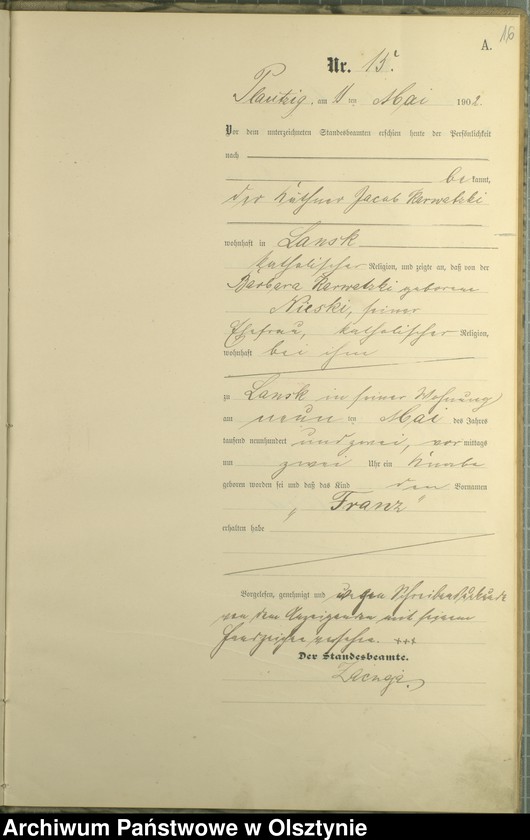 16
A.
Nr. 15.
Plautzig, am 11 ten Mai 1902.
Vor dem unterzeichneten Standesbeamten erschien heute der Persönlichkeit
nach
be kannt,
der Käthner Jacob Kerwetzki
wohnhaft in Lansk
katholischer Religion, und zeigte an, daß von der
Barbara Kerwetzki geborene
Nieski, seiner
Ehefrau, katholischer Religion,
wohnhaft bei ihm
zu Lansk in seiner Wohnung
am neun ten Mai des Jahres
tausend neunhundert und zwei, vor mittags
um zwei Uhr ein Knabe
geboren worden sei und daß das Kind den Vornamen
„Franz“
erhalten habe
Vorgelesen, genehmigt und wegen Schreibensunkunde
von dem Anzeigenden mit seinem
Handzeichen versehen. +++
Der Standesbeamte.
Archiwum Państwowe w Olsztynie